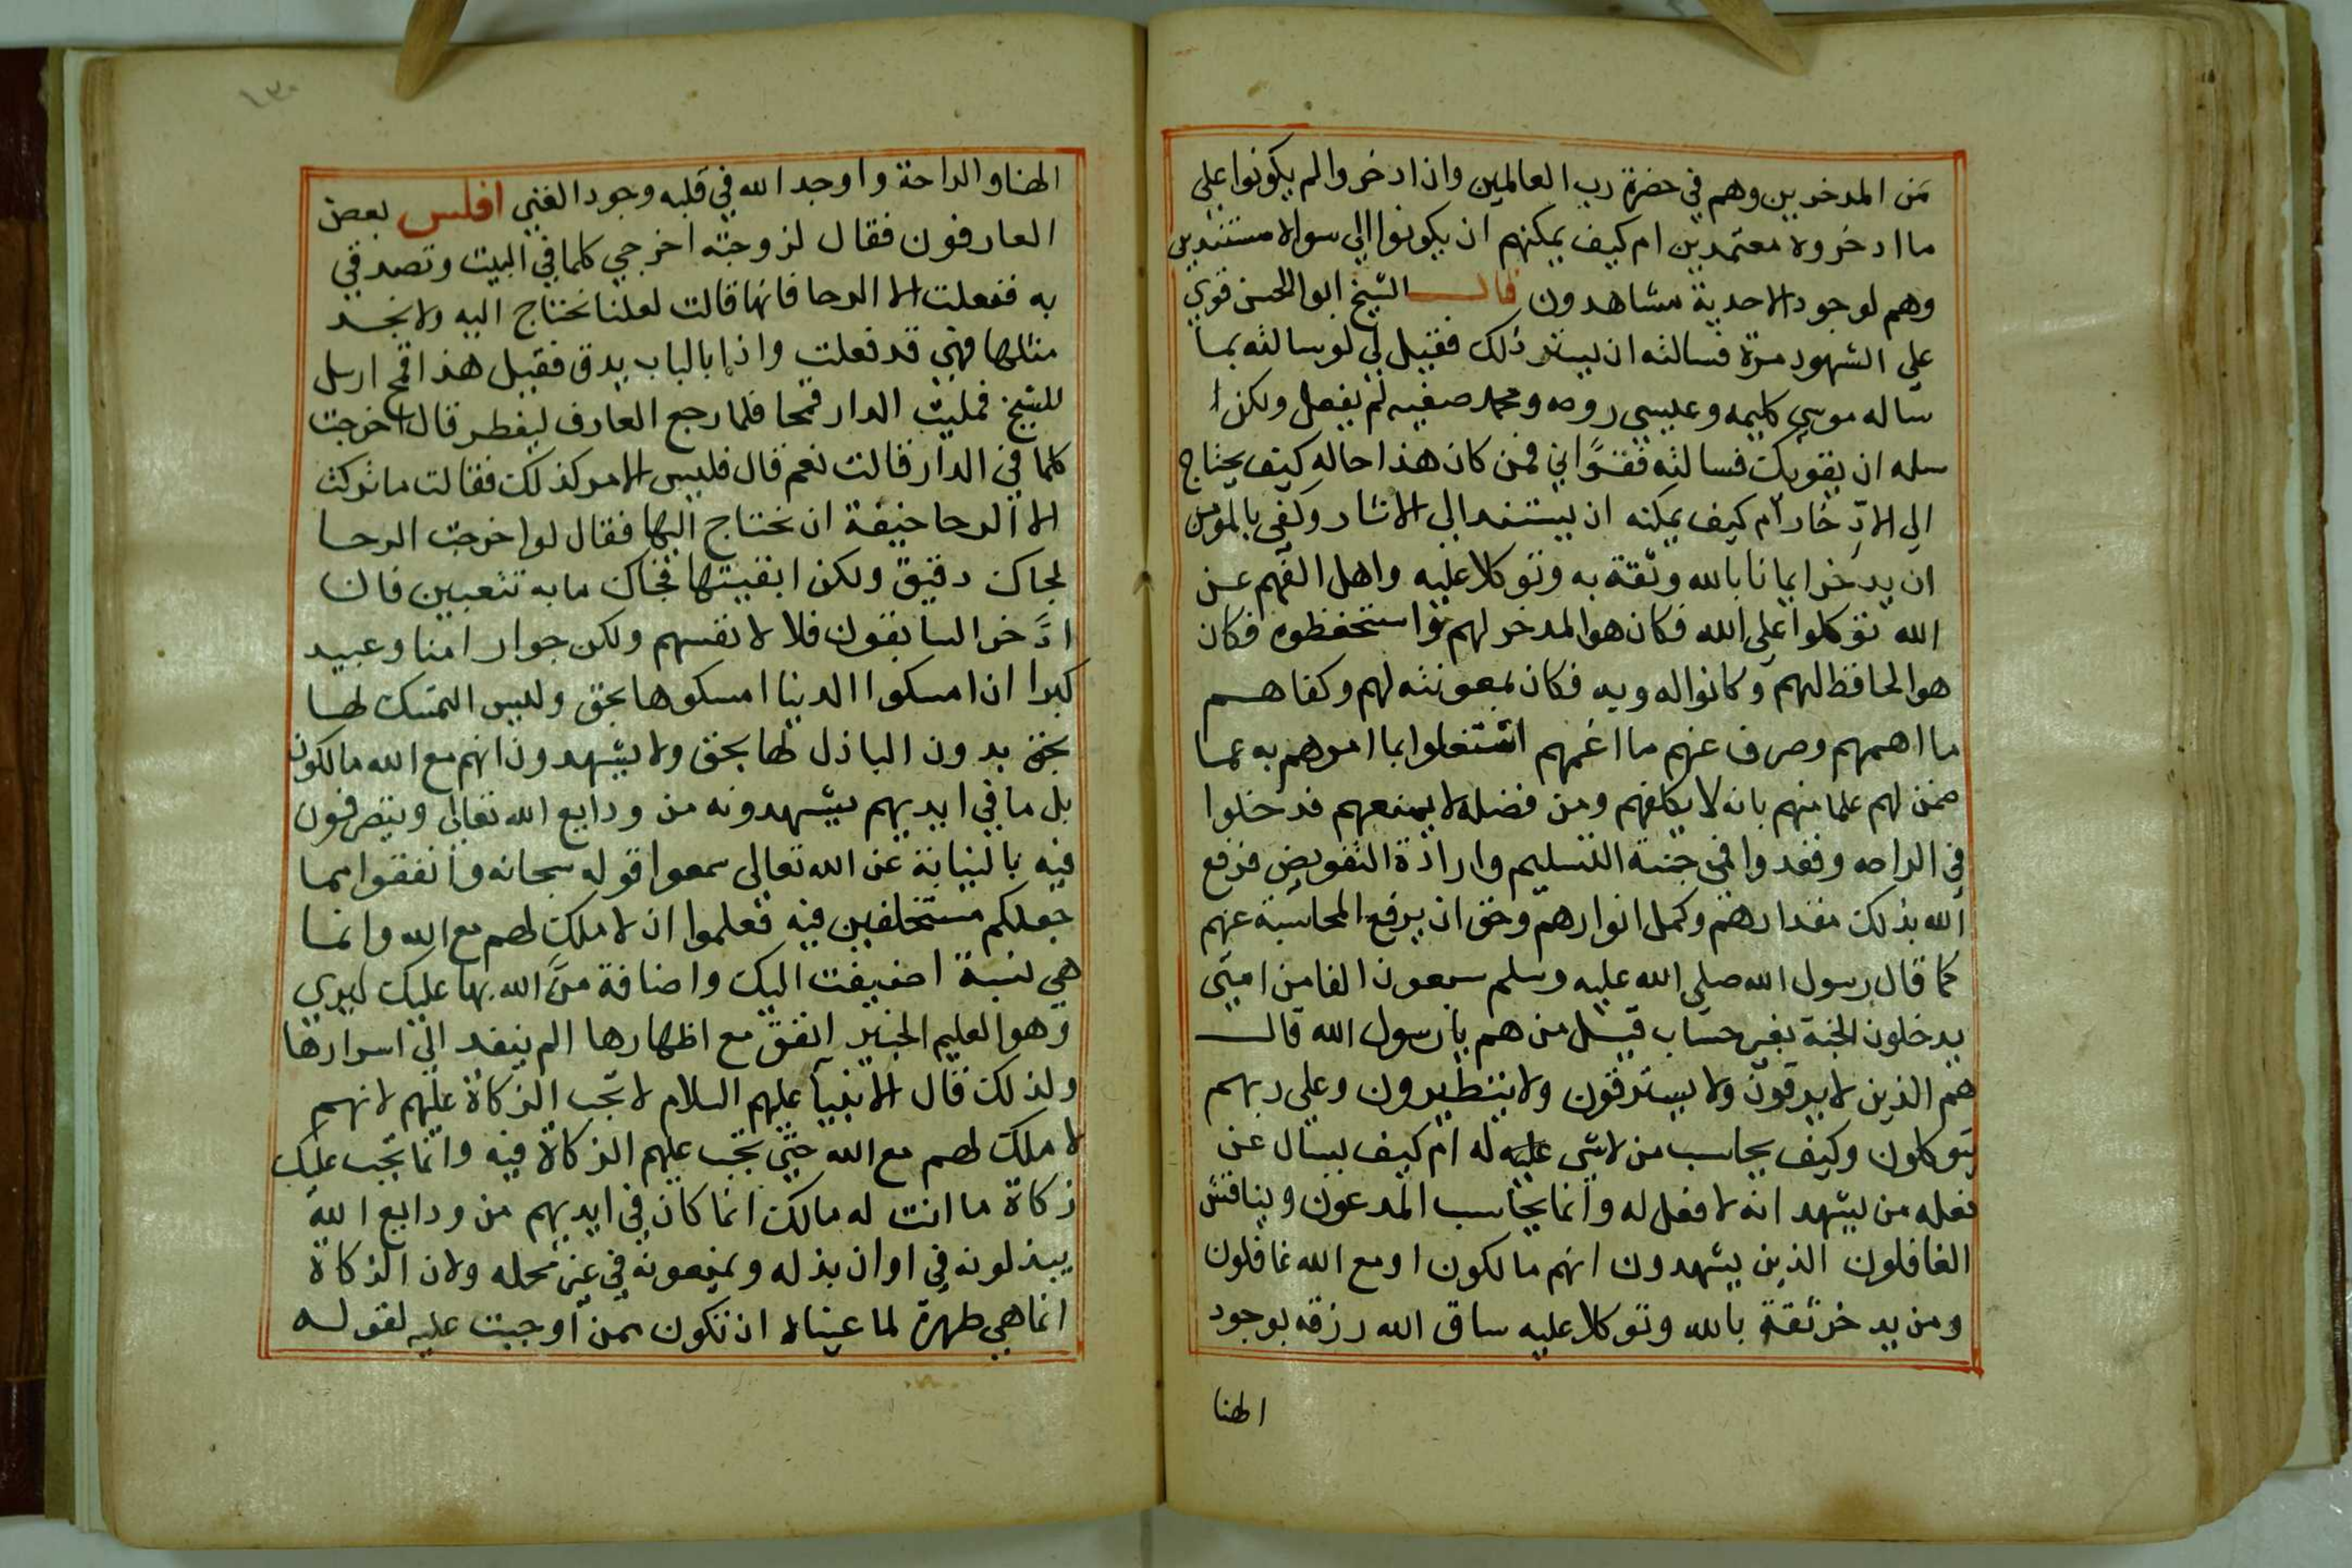 من المدخرين وهم في حضرة رب العالمين وان ادخروا لم يكونوا علي
ما ادخروه معتمدين ام كيف يمكنهم ان يكونوا الي سواه مستندين
وهم لوجود الاحدية مشاهدون قال الشيخ ابو الحسن قوي
علي الشهود مرة فسالته ان يستر ذلك فقيل لي لو سالته بما
ساله موسي كليمه وعيسي روحه ومحمد صفيه لم يفعل ولكن ا
سله ان يقويك فسالته فقوّاني فمن كان هذا حاله كيف يحتاج
الي الادّخار ام كيف يمكنه ان يستند الي الاثار وكفي بالمومن
ان يدخر ايمانا بالله وثقة به وتوكلا عليه واهل الفهم عن
الله توكلوا علي الله فكان هو المدخر لهم واستحفظوه فكان
هو الحافظ لهم وكانوا له وبه فكان بمعونته لهم وكفاهم
ما اهمهم وصرف عنهم ما اغمهم اشتغلوا بما امرهم به عما
ضمن لهم علما منهم بانه لا يكلفهم ومن فضله لا يمنعهم فدخلوا
في الراحه وفقدوا في جنة التسليم وارادة التفويض فرفع
الله بذلك مقدارهم وكمل انوارهم وحق ان يرفع المحاسبة عنهم
كما قال رسول الله صلي الله عليه وسلم سبعون الفا من امتي
يدخلون الجنة بغير حساب قيل من هم يا رسول الله قال
هم الذين لا يرقون ولا يسترقون ولا يتطيرون وعلي ربهم
يتوكلون وكيف يحاسب من لا شي عليه له ام كيف يسال عن
فعله من يشهد انه لا فعل له وانما يحاسب المدعون ويناقش
الغافلون الذين يشهدون انهم مالكون او مع الله غافلون
ومن يدخر ثقة بالله وتوكلا عليه ساق الله رزقه بوجود
الهنا
١٣٠
الهنا والراحة واوجد الله في قلبه وجود الغني افلس بعض
العارفون فقال لزوجته اخرجي كلما في البيت وتصدقي
به ففعلت الا الرحا فانها قالت لعلنا نحتاج اليه ولا نجد
مثلها فهي قد فعلت واذا بالباب يدق فقيل هذا قمح ارسل
للشيخ فمليت الدار قمحا فلما رجع العارف ليفطر قال اخرجت
كلما في الدار قالت نعم قال فليس الامر كذلك فقالت ما تركت
الا الرحا خيفة ان نحتاج اليها فقال لو اخرجت الرحا
لجاك دقيق ولكن ابقيتها فجاك ما به تتعبين فان
ادَّخر السابقون فلا لانفسهم ولكن جوار امنا وعبيد
كبرا ان امسكوا الدنيا امسكوها بحق وليس التمسك لها
بحق بدون الباذل لها بحق ولا يشهدون انهم مع الله مالكون
بل ما في ايديهم يشهدونه من ودايع الله تعالي ويتصرفون
فيه بالنيابة عن الله تعالي سمعوا قوله سبحانه وانفقوا مما
جعلكم مستخلفين فيه فعلموا ان لا ملك لهم مع الله وانما
هي نسبة اضيفت اليك واضافة منَّ الله بها عليك ليري
وهو العليم الخبير اتفق مع اظهارها الم ينفد الي اسرارها
ولذلك قال الانبيا عليهم السلام لا تجب الزكاة عليهم لانهم
لا ملك لهم مع الله حتي تجب عليهم الزكاة فيه وانما تجب عليك
زكاة ما انت له مالك انما كان في ايديهم من ودايع الله
يبذلونه في اوان بذله ويمنعونه في غير محله ولان الزكاة
انما هي طهرة لما عيناه ان تكون ممن اوجبت عليه لقوله